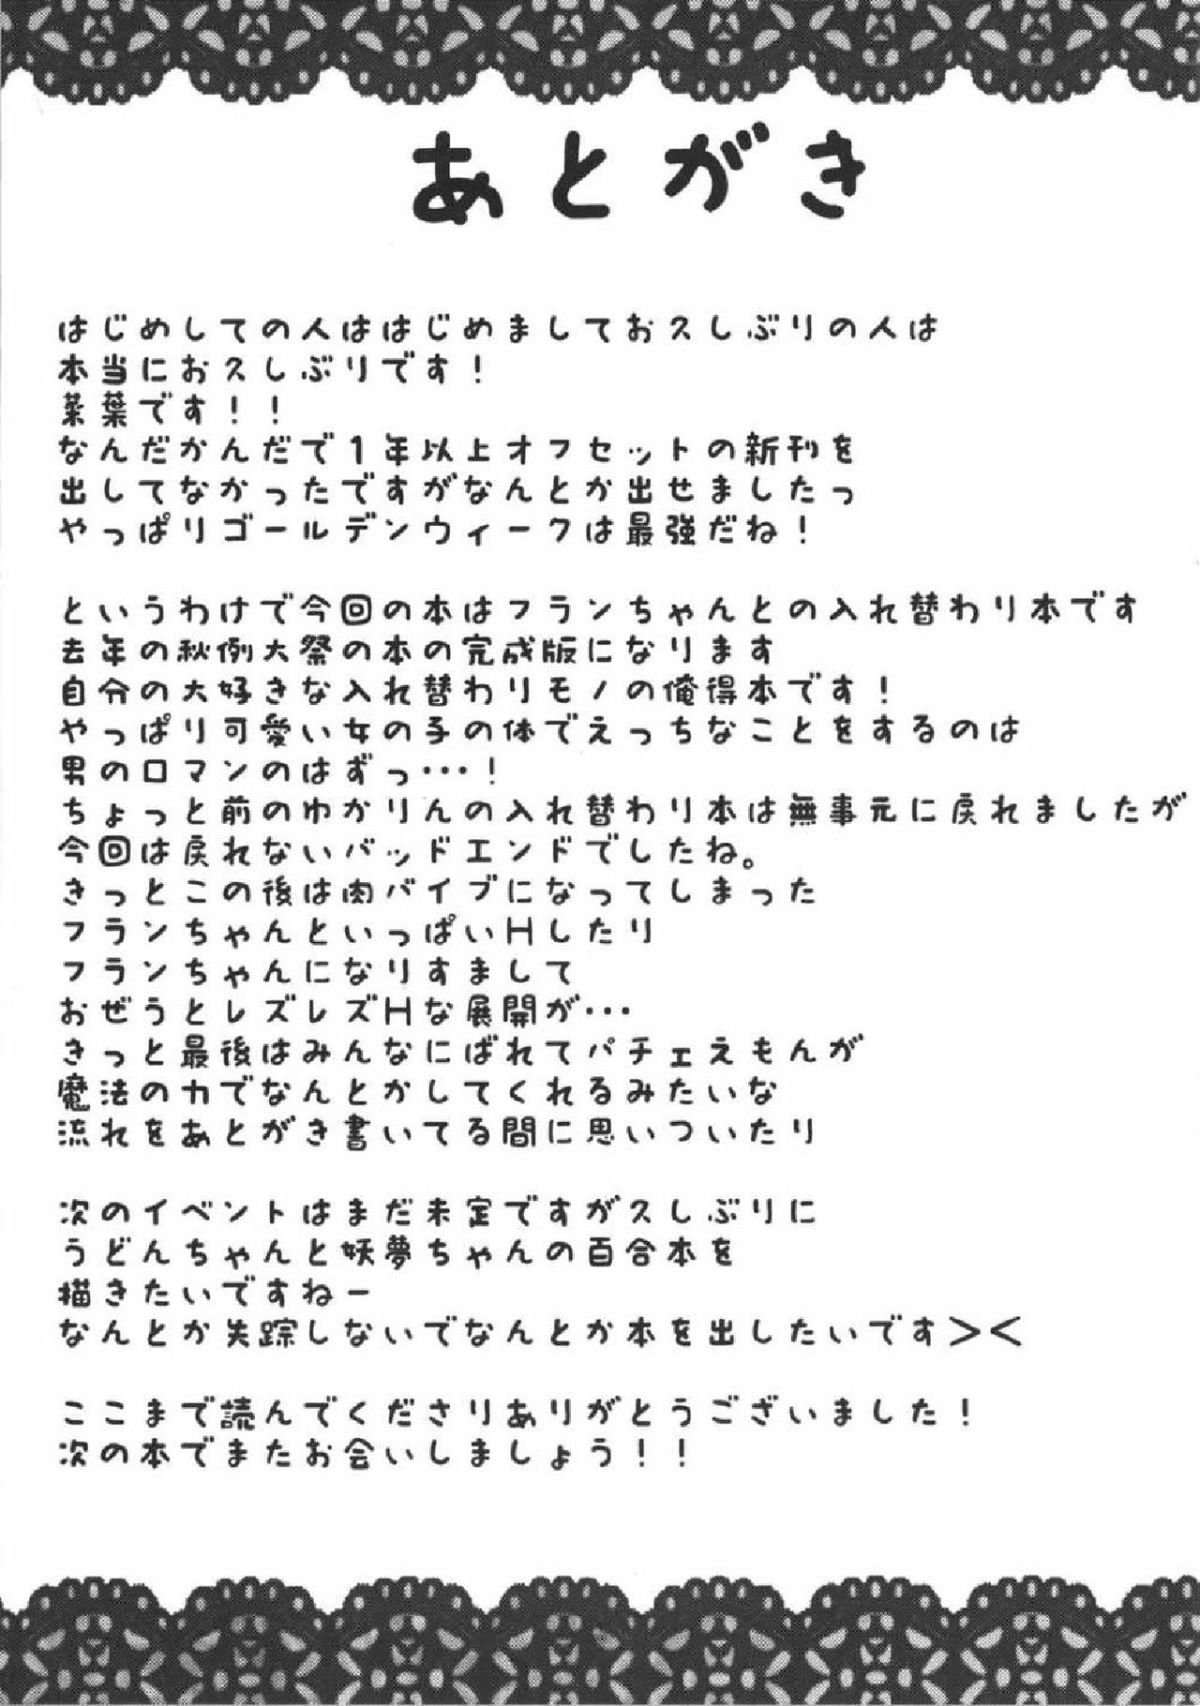 あとがき
はじめしての人ははじめましてお久しぶりの人は
本当にお久しぶりです！
菜葉です！！
なんだかんだで１年以上オフセットの新刊を
出してなかったですがなんとか出せましたっ
やっぱりゴールデンウィークは最強だね！
というわけで今回の本はフランちゃんとの入れ替わり本です
去年の秋例大祭の本の完成版になります
自分の大好きな入れ替わりモノの俺得本です！
やっぱり可愛い女の子の体でえっちなことをするのは
男のロマンのはずっ・・・！
ちょっと前のゆかりんの入れ替わり本は無事元に戻れましたが
今回は戻れないバッドエンドでしたね。
きっとこの後は肉バイブになってしまった
フランちゃんといっぱいＨしたり
フランちゃんになりすまして
おぜうとレズレズＨな展開が・・・
きっと最後はみんなにばれてパチェえもんが
魔法の力でなんとかしてくれるみたいな
流れをあとがき書いてる間に思いついたり
次のイベントはまだ未定ですが久しぶりに
うどんちゃんと妖夢ちゃんの百合本を
描きたいですねー
なんとか失踪しないでなんとか本を出したいです＞＜
ここまで読んでくださりありがとうございました！
次の本でまたお会いしましょう！！